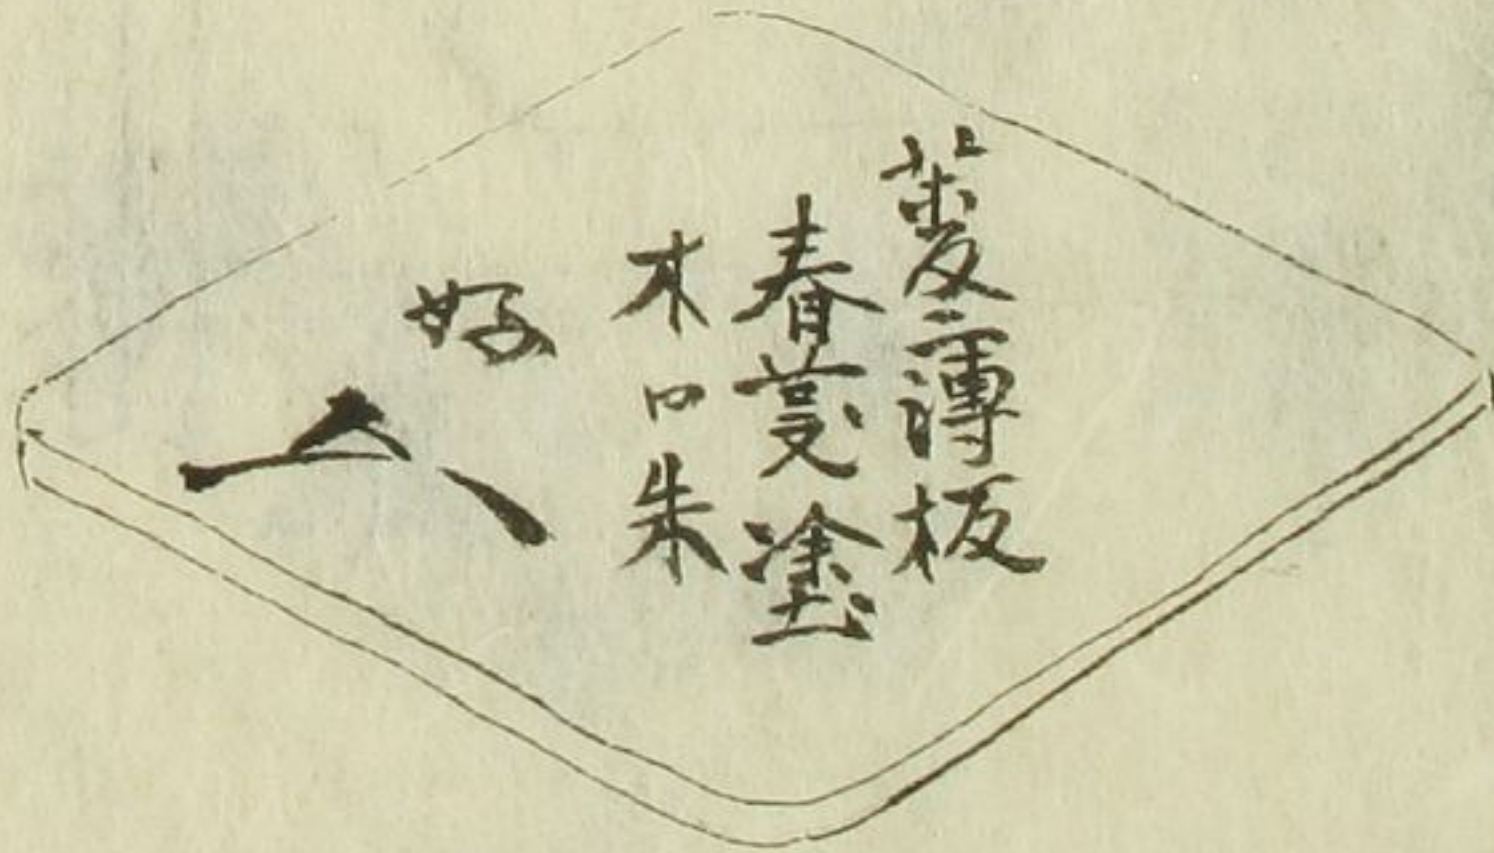 菱薄板
春慶塗
木口朱
好